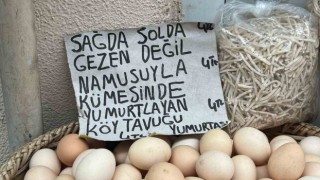 SAĞDA SOLDA 4TL
GEZEN DEĞİL 4TL
NAMUSUYLA
KÜMESİNDE
YUMURTLAYAN 4TL
KÖY TAVUĞU
4TL YUMURTASI